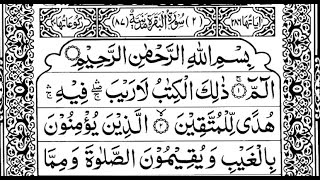 اٰيَاتُهَا ٢٨٦ (٢) سُوْرَةُ الْبَقَرَةِ مَدَنِيَّةٌ (٨٧) رُكُوْعَاتُهَا ٤٠
بِسْمِ اللّٰهِ الرَّحْمٰنِ الرَّحِيْمِ
الٓمّٓ ۚ۝ ذٰلِكَ الْكِتٰبُ لَا رَيْبَ ۛۚ فِيْهِ ۛۚ
هُدًى لِّلْمُتَّقِيْنَ ۝ الَّذِيْنَ يُؤْمِنُوْنَ
بِالْغَيْبِ وَيُقِيْمُوْنَ الصَّلٰوةَ وَمِمَّا